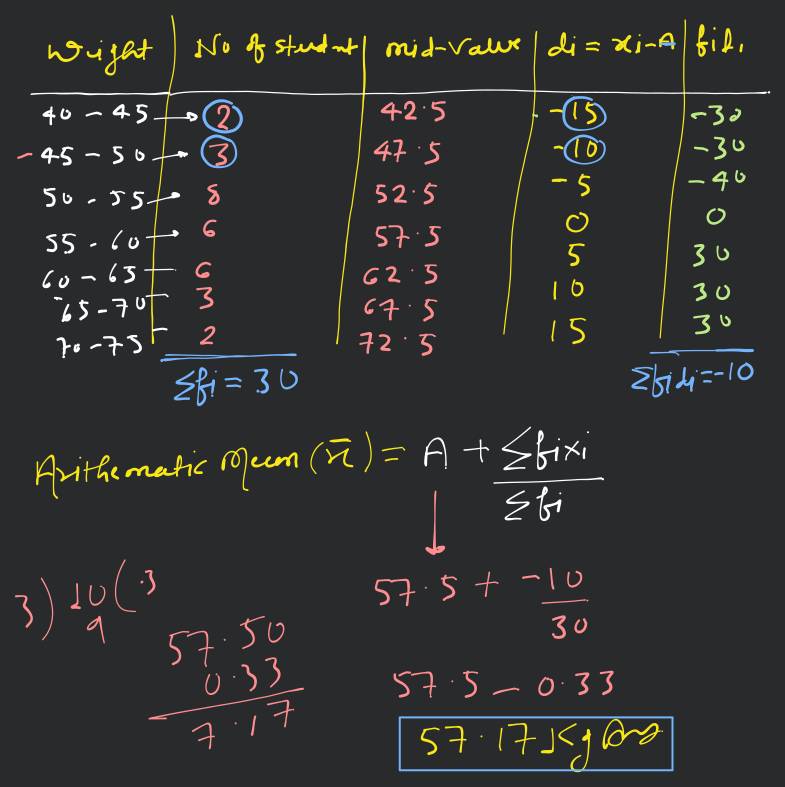 Weight No of student mid-value di = xi-A fidi
40 - 45 2 42.5 -15 -30
45 - 50 3 47.5 -10 -30
50 - 55 8 52.5 -5 -40
55 - 60 6 57.5 0 0
60 - 65 6 62.5 5 30
65-70 3 67.5 10 30
70-75 2 72.5 15 30
Σfi = 30 Σfidi=-10
Arithematic Mean (x̄) = A + Σfixi / Σfi
57.5 + -10 / 30
3) 10 (.3
9
57.50
0.33
7.17
57.5 - 0.33
57.17 Kg Ans